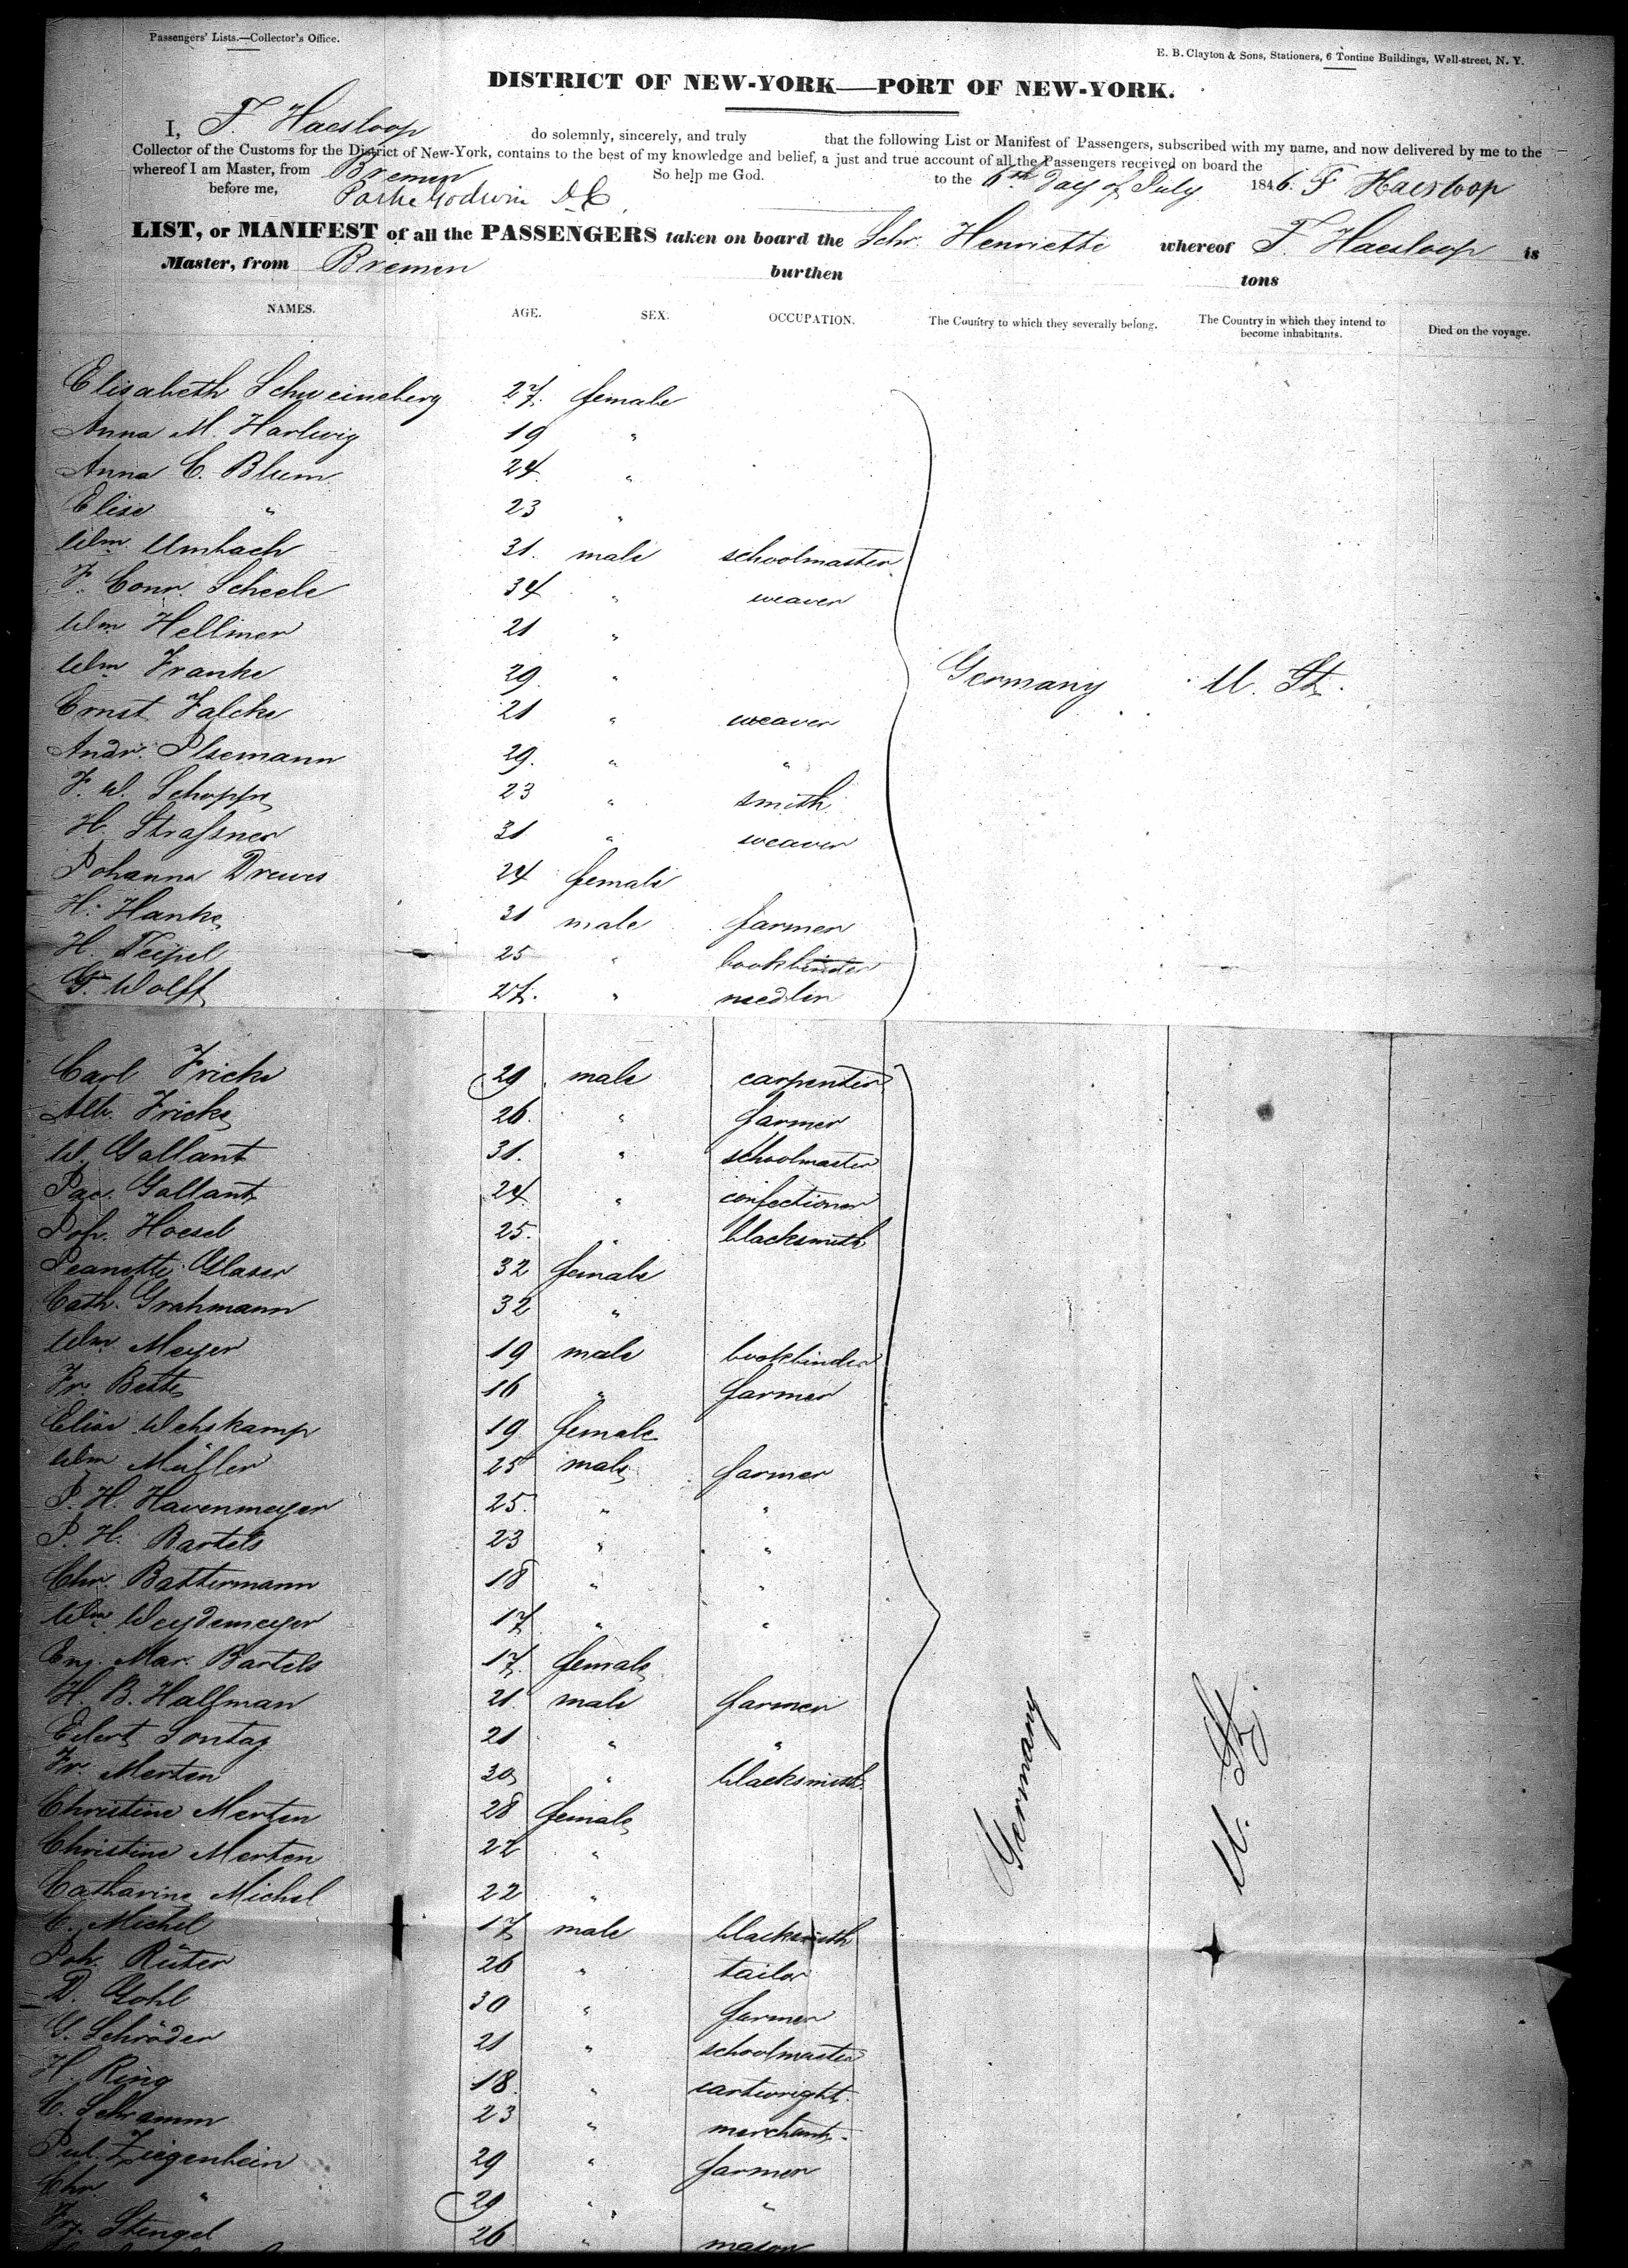 Passengers' Lists.—Collector's Office.
E. B. Clayton & Sons, Stationers, 6 Tontine Buildings, Wall-street, N. Y.
DISTRICT OF NEW-YORK—PORT OF NEW-YORK.
I, F. Haesloop do solemnly, sincerely, and truly that the following List or Manifest of Passengers, subscribed with my name, and now delivered by me to the
Collector of the Customs for the District of New-York, contains to the best of my knowledge and belief, a just and true account of all the Passengers received on board the
whereof I am Master, from Bremen So help me God. to the 6th Day of July 1846. F Haesloop
before me, Parke Godwin D C
LIST, or MANIFEST of all the PASSENGERS taken on board the Schr. Henriette whereof F. Haesloop is
Master, from Bremen burthen tons
NAMES. AGE. SEX. OCCUPATION. The Country to which they severally belong. The Country in which they intend to become inhabitants. Died on the voyage.
Elisabeth Schweineberg 27. female
Anna M. Hartwig 19 "
Anna C. Blum 24 "
Elise " 23 "
Wm. Umbach 31. male schoolmaster
F. Conr. Scheele 34 " weaver
Wm Hellmer 21 "
Wm. Franke 29. " Germany U. St.
Ernst Falcke 21 " weaver
Andr. Ilsemann 29. " "
F. W. Schoppe 23 " smith
H. Straſsner 31 " weaver
Johanna Drewes 24 female
H. Hanke 31 male farmer
H. Teipel 25 " bookbinder
G. Wolff 27. " needler
Carl Fricke 29 male carpenter
Alb. Fricke 26. " farmer
W. Gallant 31. " schoolmaster
Jac. Gallant 24 " confectioner
Joh. Hoesel 25. " blacksmith
Jeanette Glaser 32 female
Cath. Grahmann 32 "
Wm. Meyer 19 male bookbinder
Fr. Beste 16 " farmer
Elise Wehskamp 19. female
Wm Müller 25 male farmer
J. H. Havenmeyer 25. " "
J. H. Bartels 23 " "
Chr. Battermann 18 " "
Wm. Weydemeyer 17 " "
Eng. Mar. Bartels 17. female
H. B. Halfman 21 male farmer
Eilert Sontag 21 " "
Fr. Merten 30 " blacksmith
Christine Merten 28 female
Christine Merten 22 "
Germany U. St.
Catharine Michel 22 "
C. Michel 17 male blacksmith
Joh. Rüter 26 " tailor
D. Gohl 30 " farmer
G. Schröder 21 " schoolmaster
H. Ring 18. " cartwright.
C. Schramm 23 " merchant.
Jul. Ziegenbein 29 " farmer
Chr. " 29 " "
Fr. Stengel 26 " mason